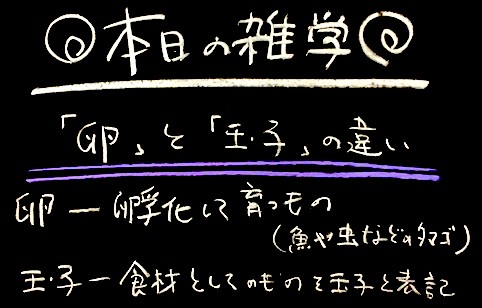 本日の雑学
「卵」と「玉子」の違い
卵ー孵化して育つもの
(魚や虫などのタマゴ)
玉子ー食材としてのものを玉子と表記